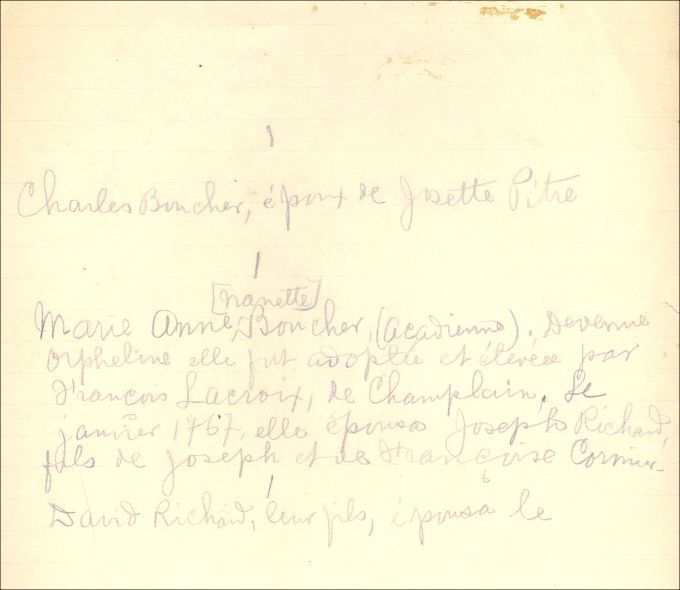 Charles Boucher, époux de Josette Pitre
[Nanette]
Marie Anne, Boucher, (acadienne). Devenue
Orpheline elle fut adoptée et élevée par
François Lacroix, de Champlain. Le
janvier 1767, elle épousa Joseph Richard,
fils de Joseph et de Françoise Cormier
David Richard, leur fils, épousa le